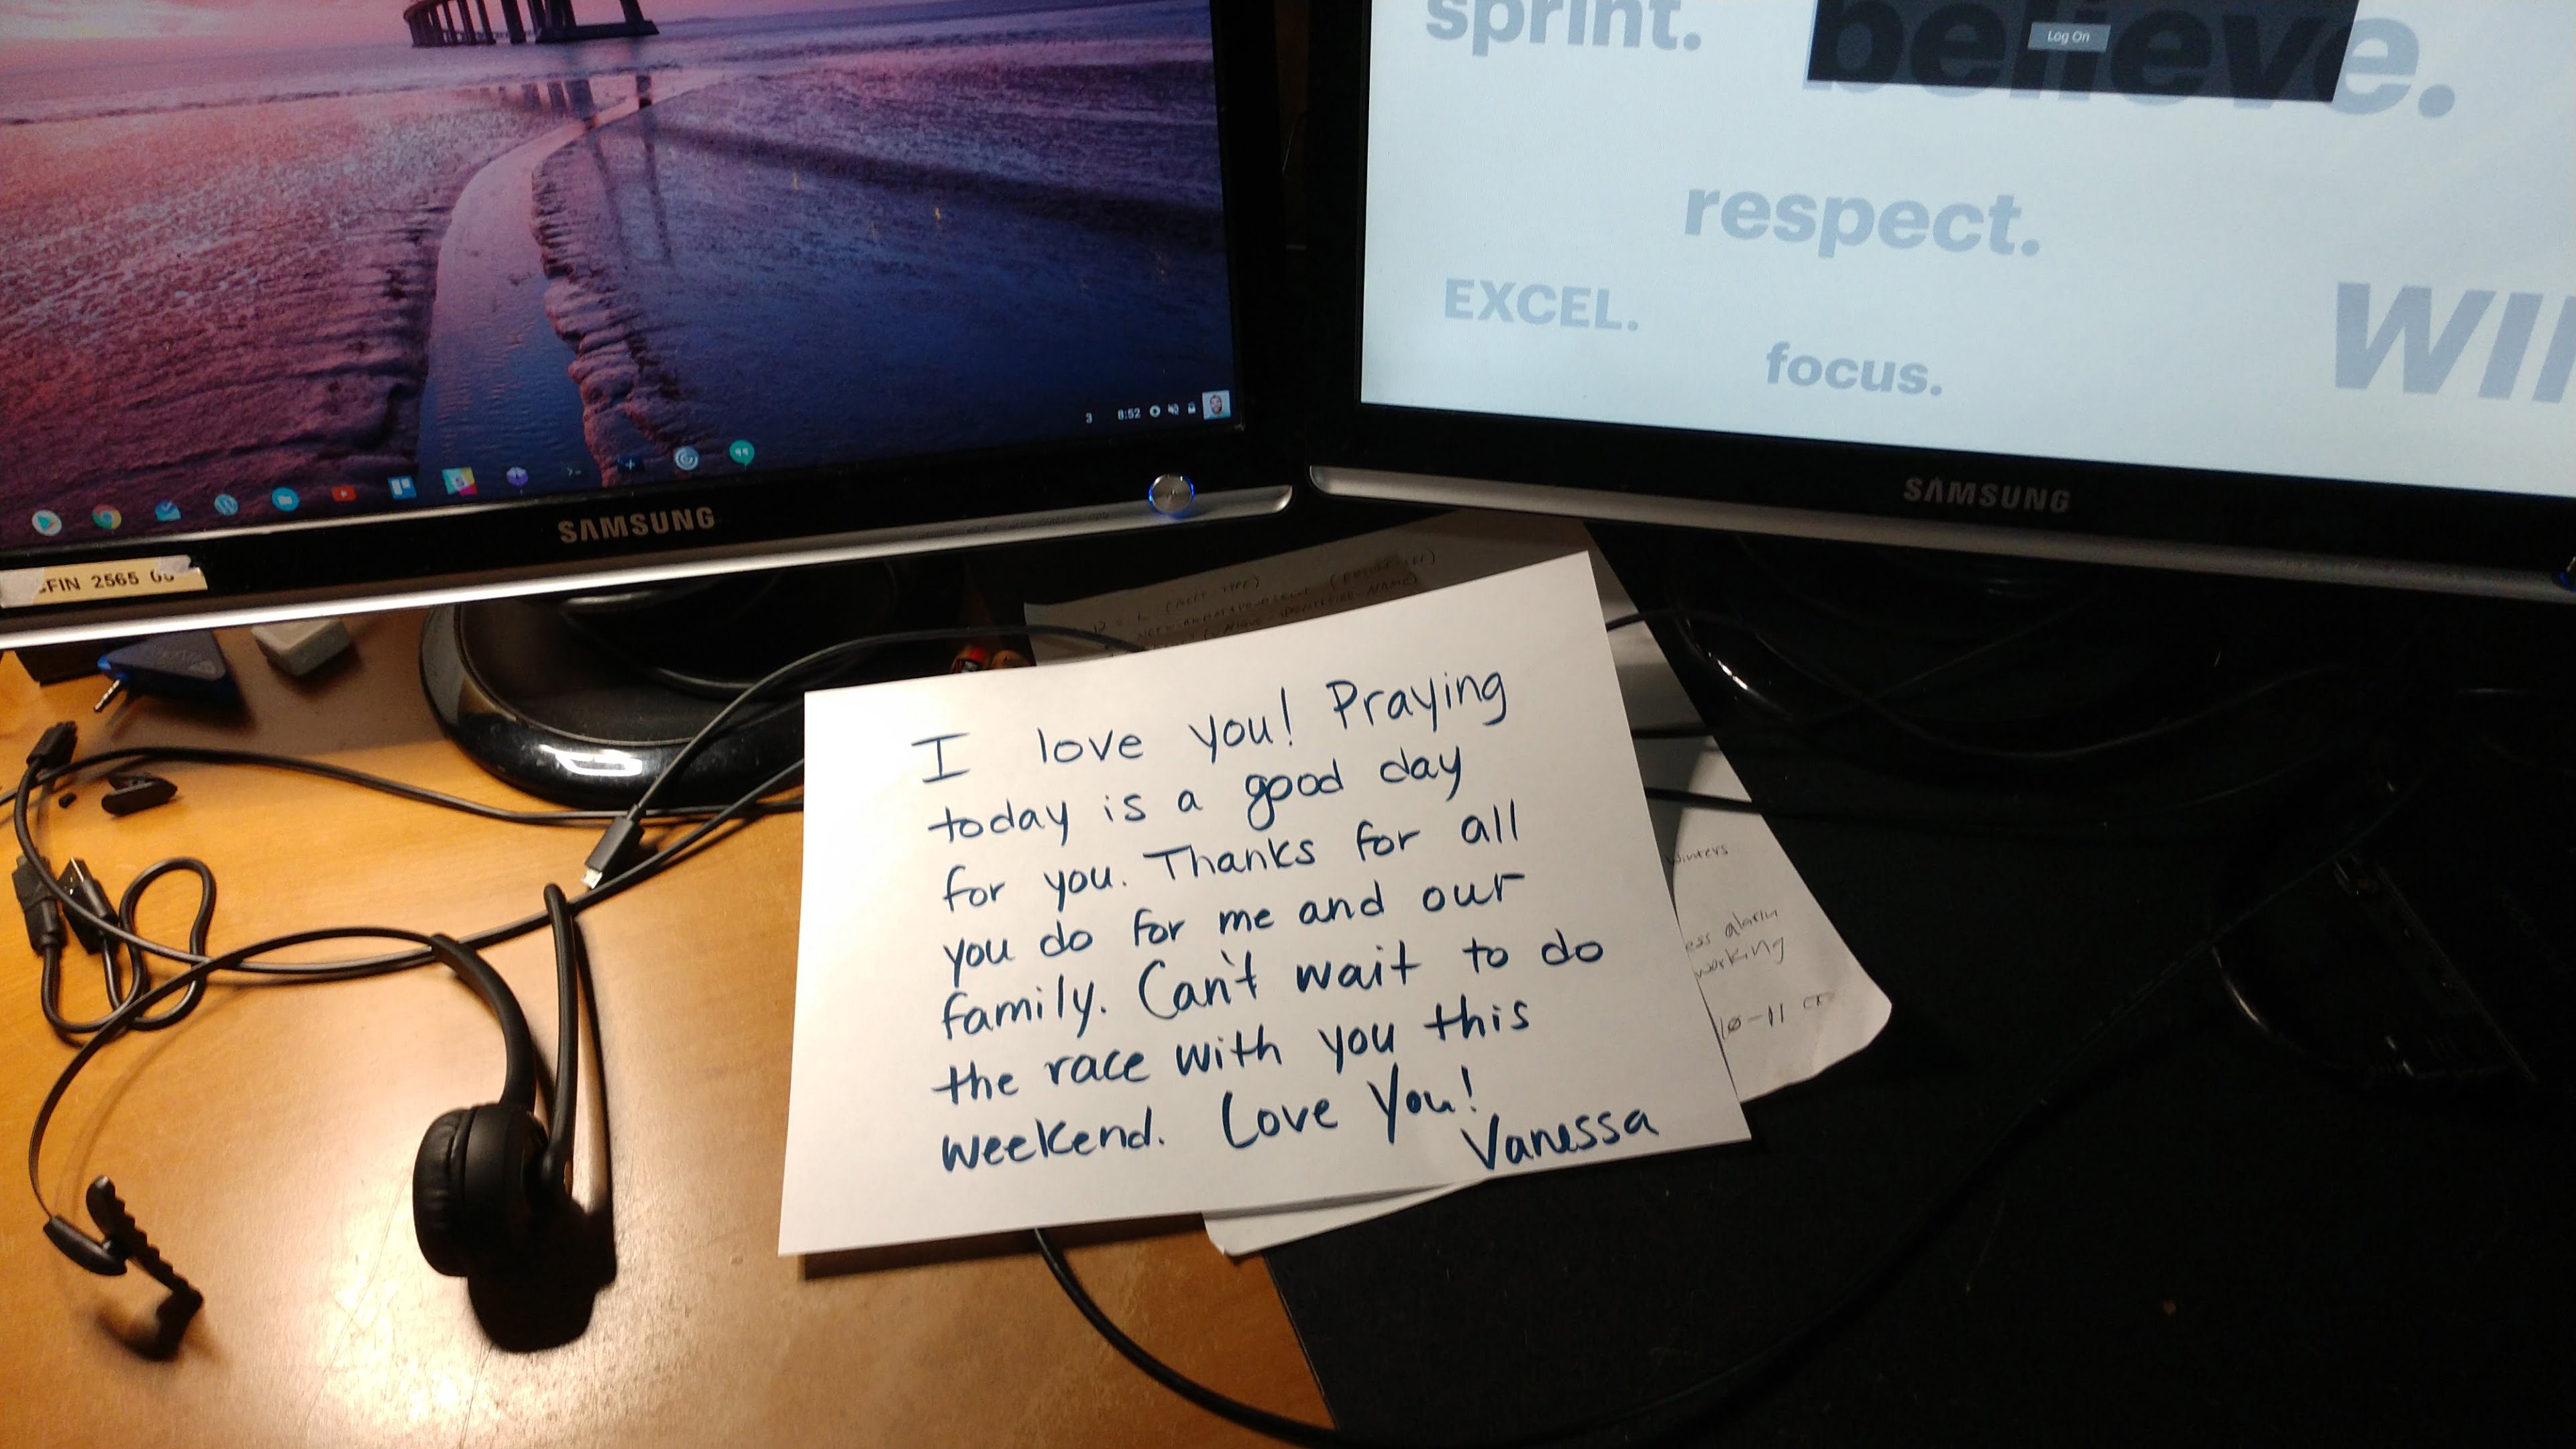 sprint.
believe.
Log On
respect.
EXCEL.
focus.
3 8:52
SAMSUNG
SAMSUNG
FIN 2565
I love you! Praying
today is a good day
for you. Thanks for all
you do for me and our
family. Can't wait to do
the race with you this
weekend. Love You!
Vanessa
winters
alarm
working
10-11